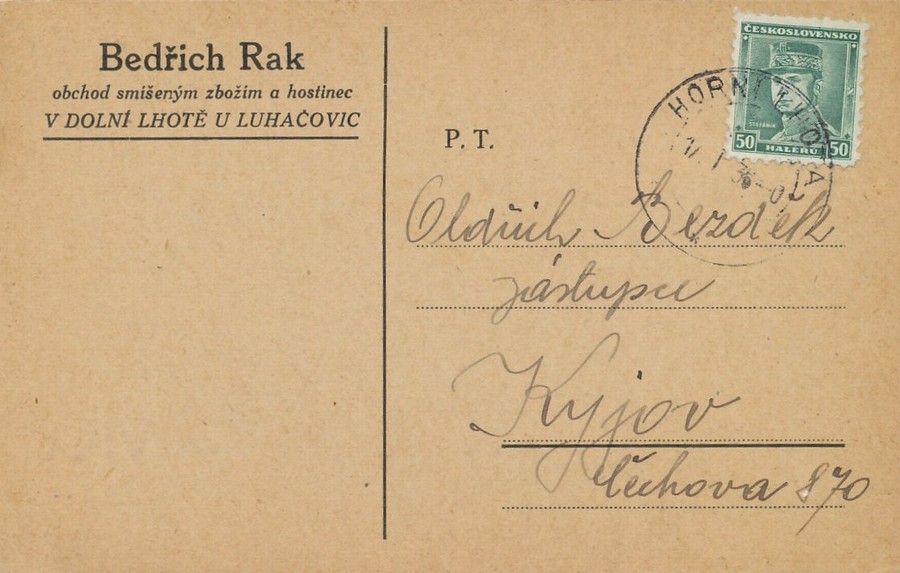 Bedřich Rak
obchod smíšeným zbožím a hostinec
V DOLNÍ LHOTĚ U LUHAČOVIC
ČESKOSLOVENSKO
ŠTEFÁNIK
50 HALÉŘŮ 50
HORNÍ LHOTA
P. T.
Oldřich Bezdek
zástupce
Kyjov
Čechova 870